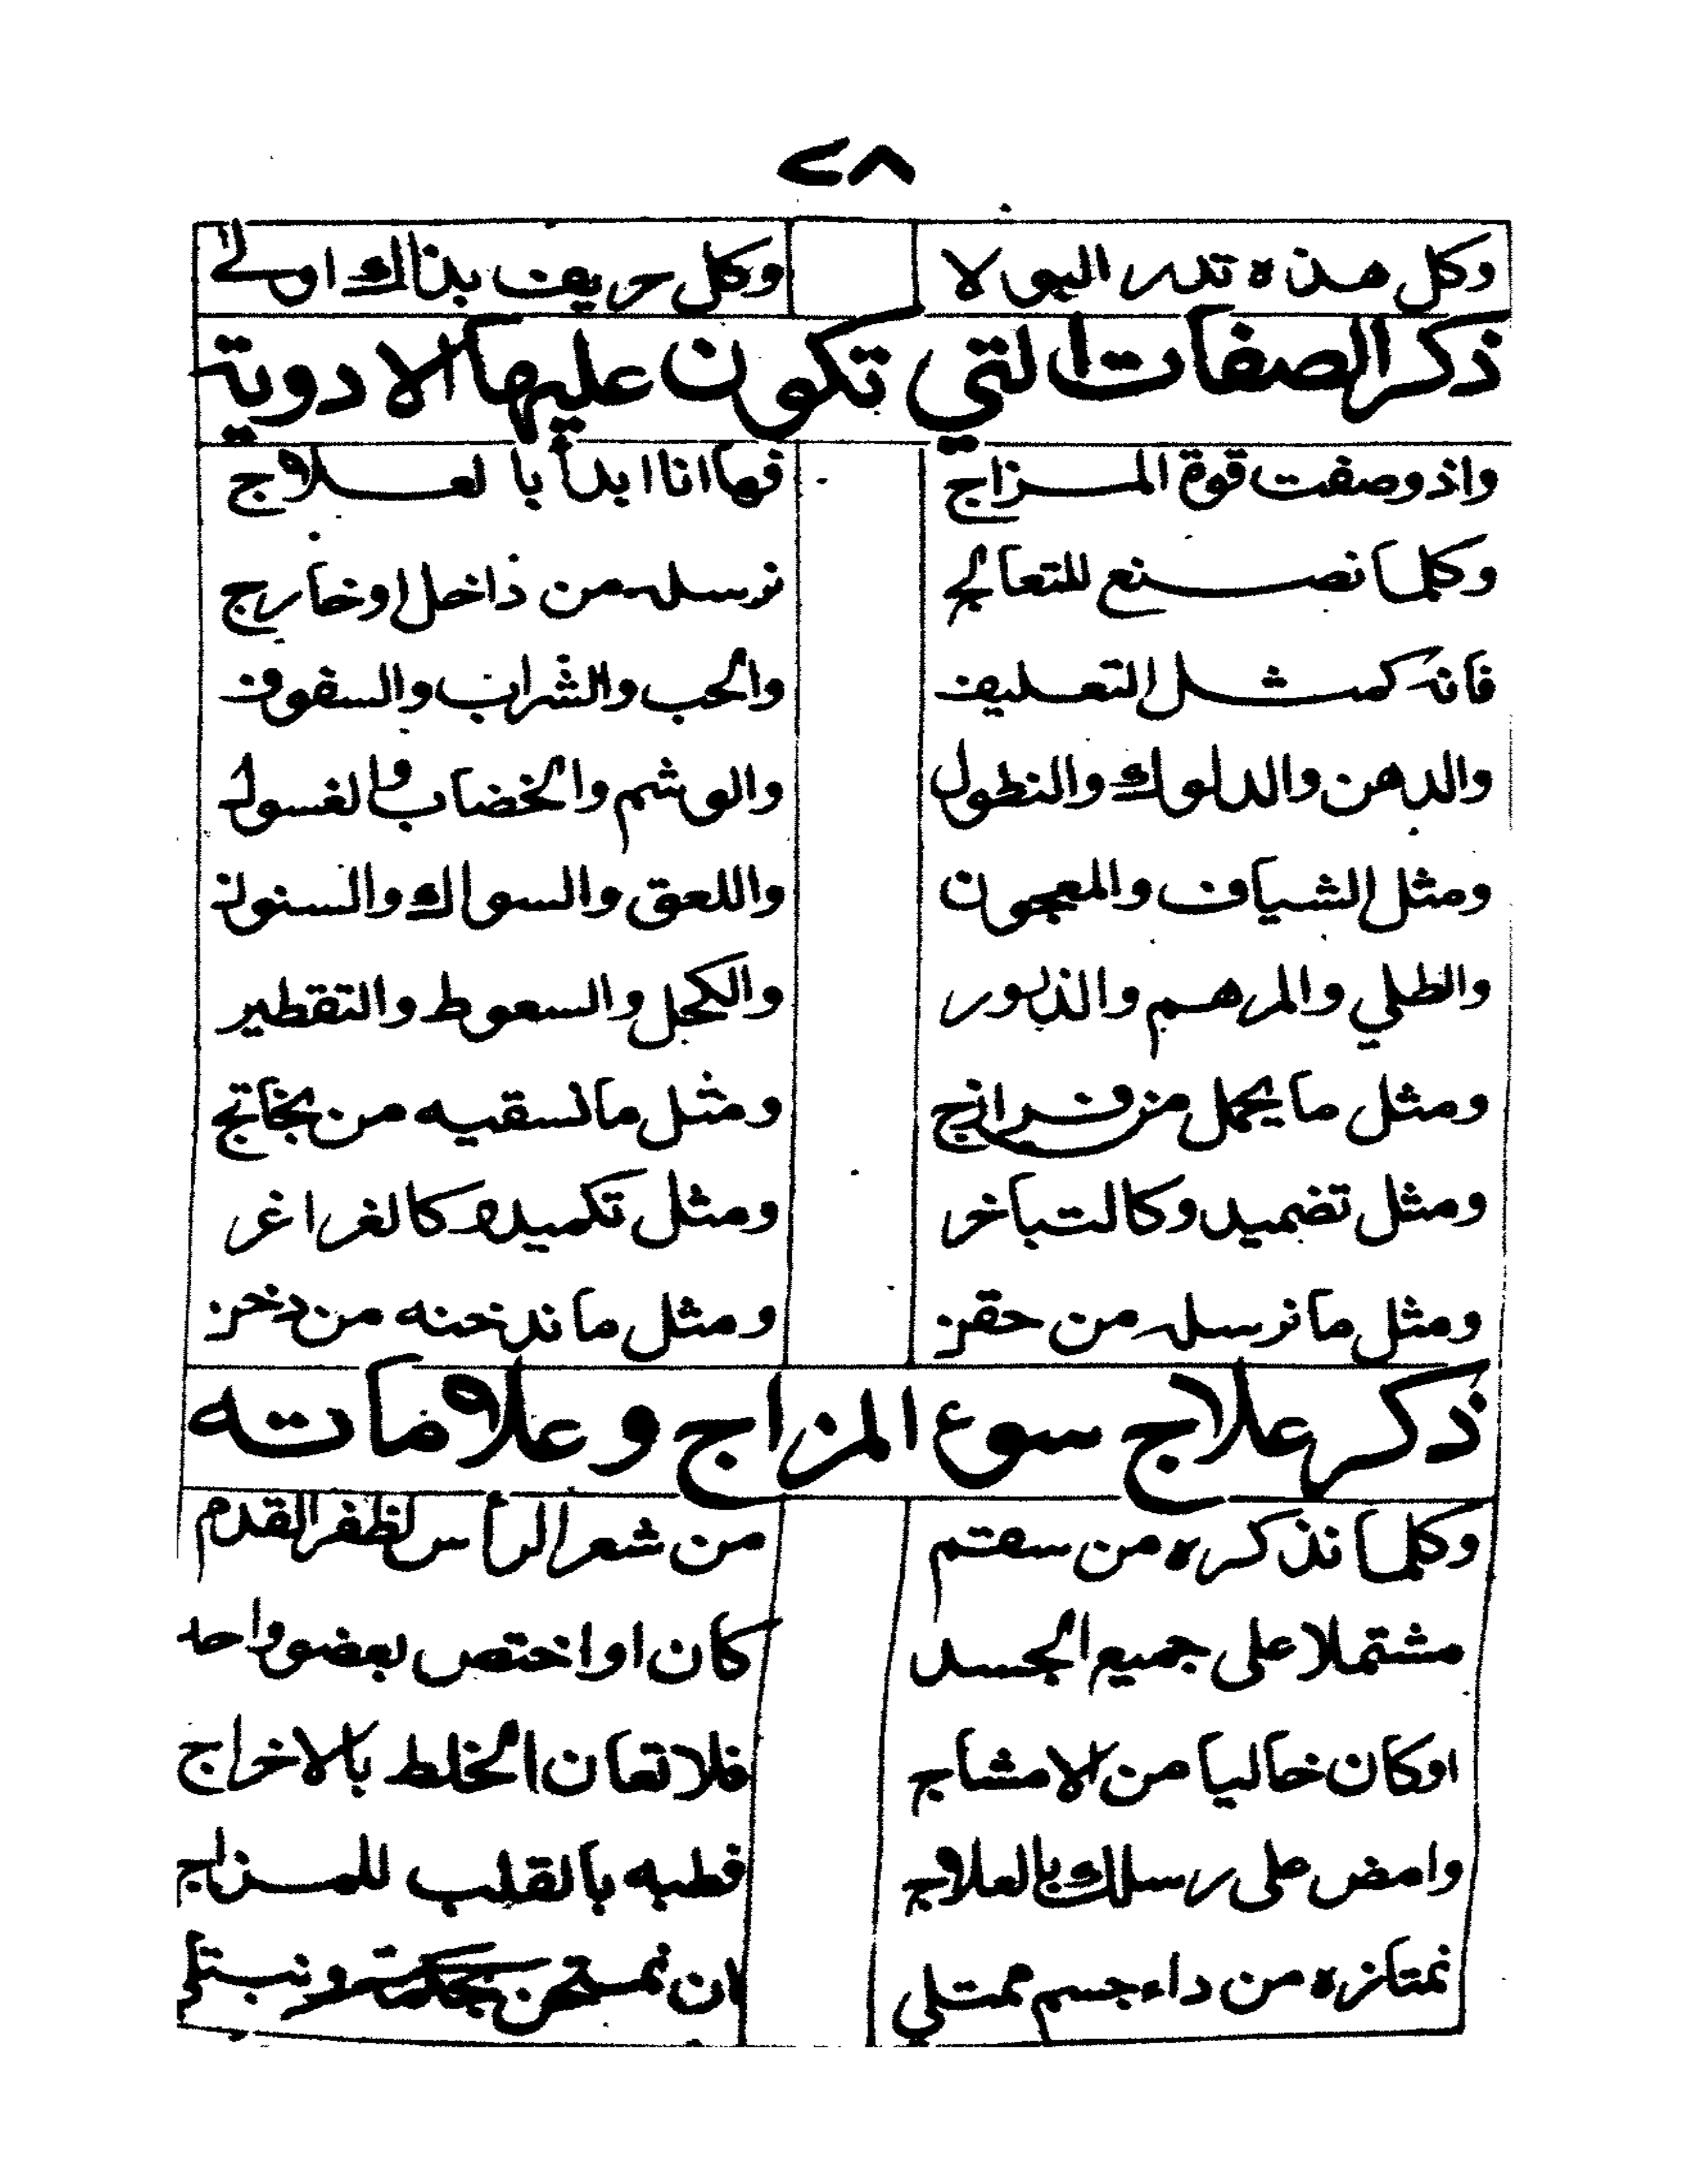 ٢٨
وكل هذه تدر البولا وكل حريف بذاك اولى
ذكر الصفات التي تكون عليها الادوية
واذ وصفت قوة المزاج فها انا ابدأ بالعلاج
وكلما نصنع للتعالج نرسله من داخل او خارج
فانه كمثل التعليف والحب والشراب والسفوف
والدهن والدلوك والنطول والوشم والخضاب والغسول
ومثل الشياف والمعجون واللعق والسواك والسنون
والطلي والمرهم والذرور والكحل والسعوط والتقطير
ومثل ما يحمل من فرازج ومثل ما نسقيه من بخاتج
ومثل تضميد وكالتباخر ومثل تكميد وكالغراغر
ومثل ما نرسله من حقن ومثل ما ندخنه من دخن
ذكر علاج سوء المزاج وعلاماته
وكلما نذكره من سقم من شعر الرأس لظفر القدم
مشتملا على جميع الجسد كان او اختص بعضو واحد
اوكان خاليا من الامشاج فلا تعان الخلط بالاخراج
وامض على رسلك بالعلاج فطبه بالقلب للمزاج
نمتازه من داء جسم ممتلي ان نمتحن ونبتلي